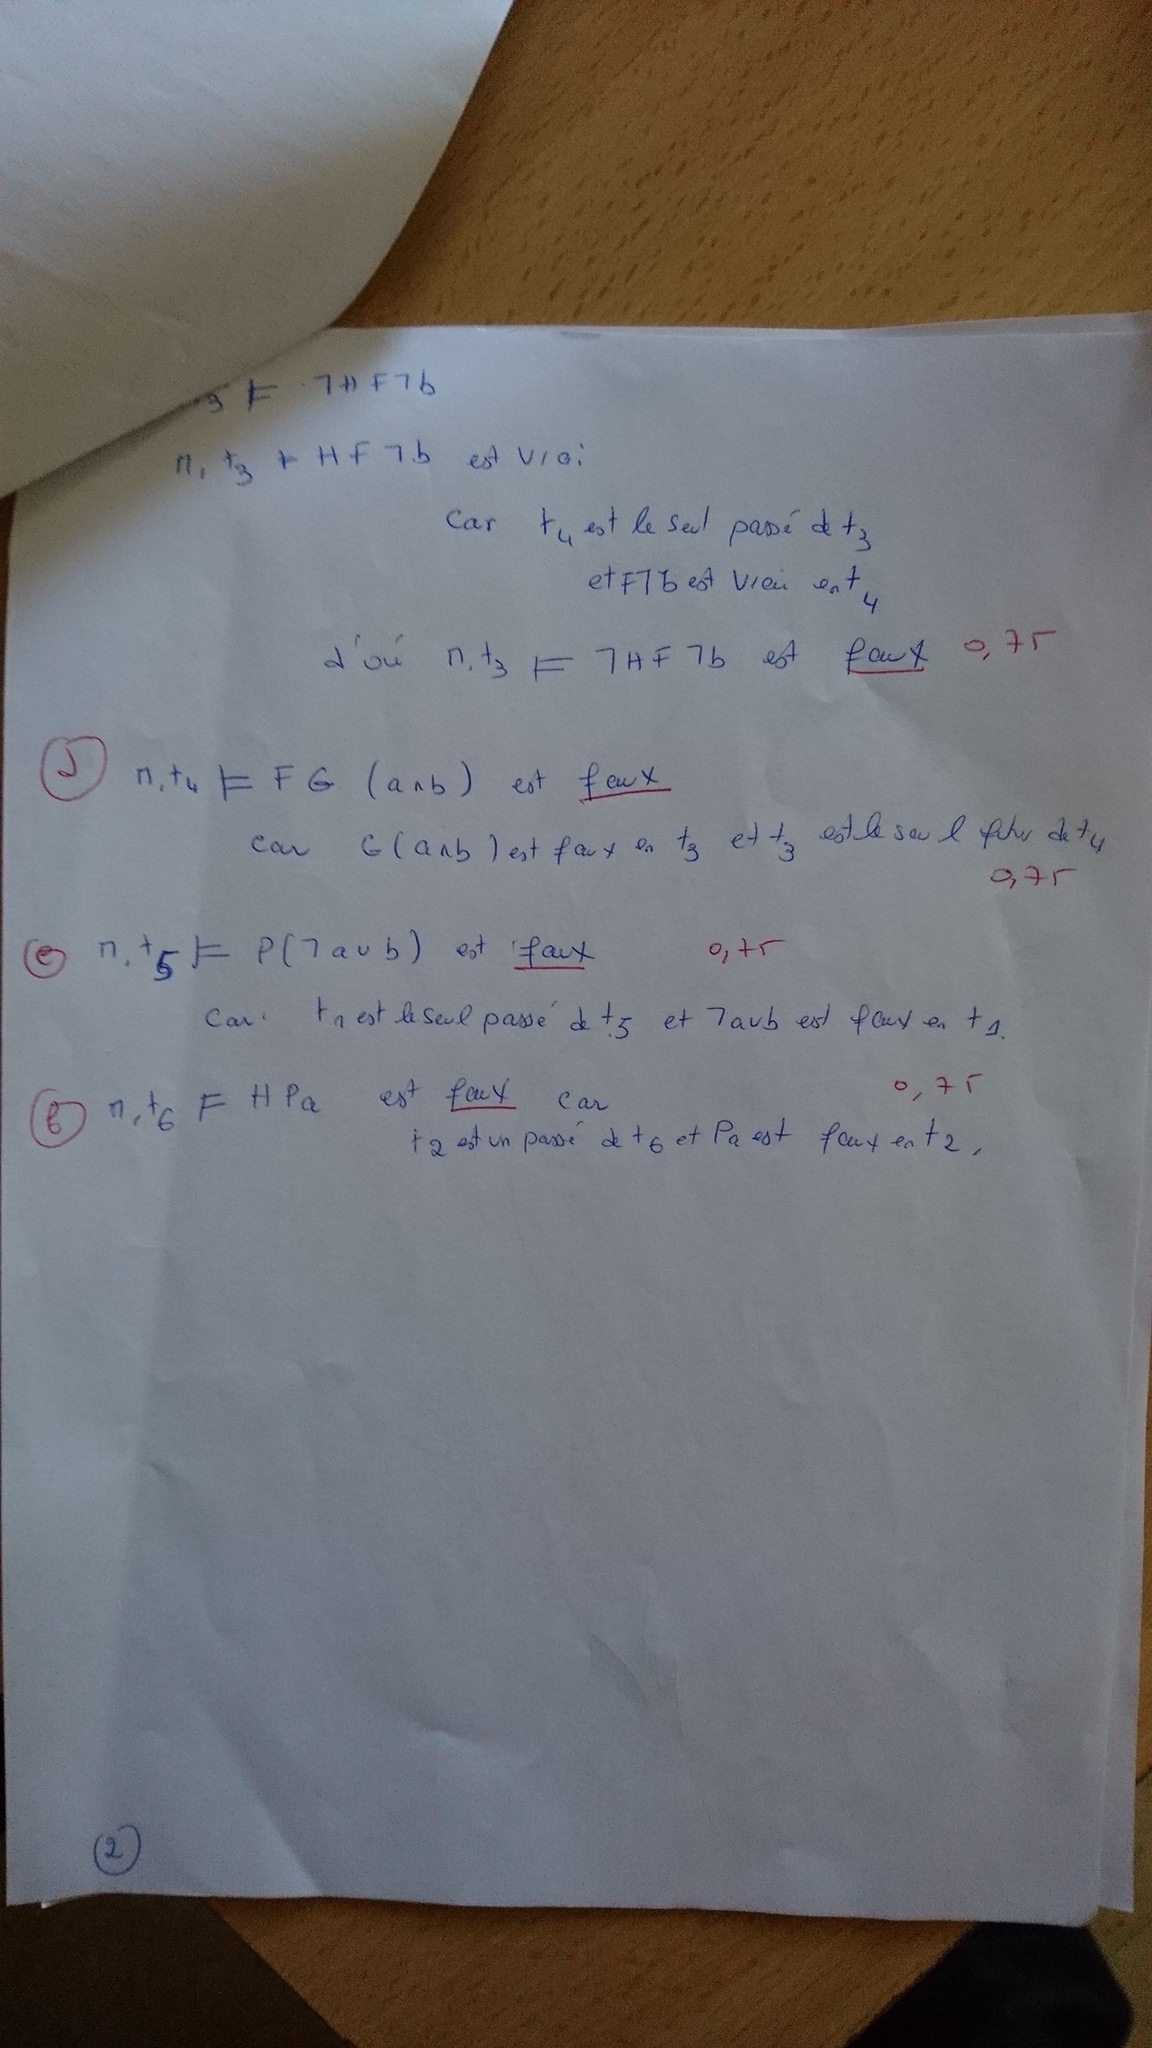 3 ⊨ ¬HF¬b
M, t3 ⊨ HF¬b est vrai
car t4 est le seul passé de t3
et F¬b est vrai en t4
d'où M, t3 ⊨ ¬HF¬b est faux 0,75
d M, t4 ⊨ FG (a∧b) est faux
car G(a∧b) est faux en t3 et t3 est le seul futur de t4
0,75
e M, t5 ⊨ P(¬a∨b) est faux 0,75
car t1 est le seul passé de t5 et ¬a∨b est faux en t1.
M, t6 ⊨ HPa est faux car 0,75
t2 est un passé de t6 et Pa est faux en t2.
2